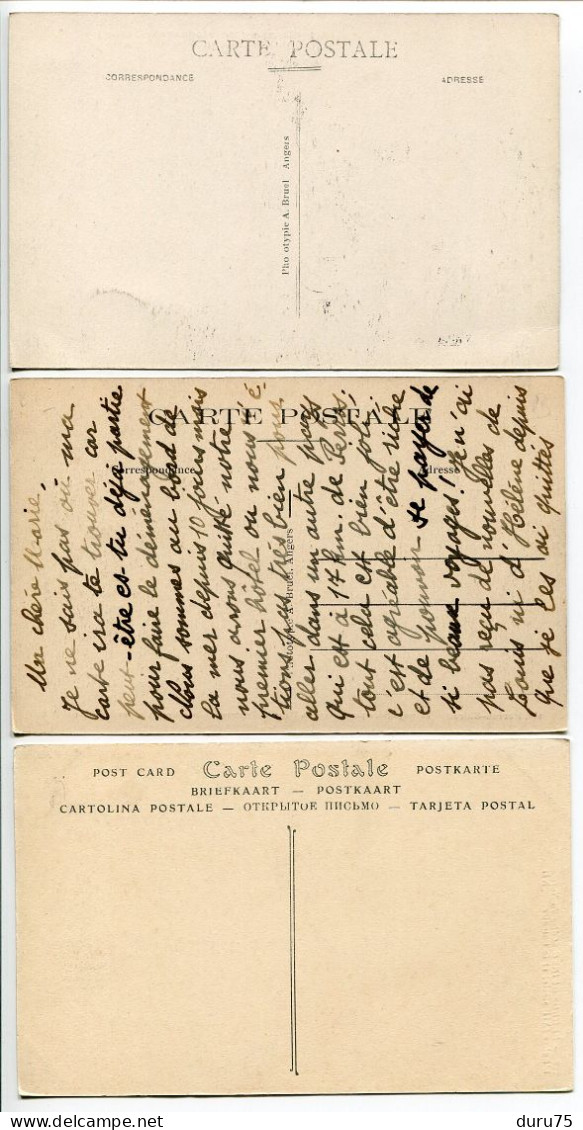 CARTE POSTALE
CORRESPONDANCE
ADRESSE
Pho otypie A. Bruel Angers
CARTE POSTALE
Correspondance
Adresse
totypie A. Bruel, Angers
Ma chère Marie,
Je ne sais pas où ma
carte ira te trouver car
peut-être es-tu déjà partie
pour faire le déménagement
Nous sommes au bord de
la mer depuis 10 jours mais
nous avons quitté notre
premier hôtel ou nous n'é
tions pas très bien pour
aller dans un autre pays
qui est à 17 km. de
tout cela est bien joli,
c'est agréable d'être riche
et de pouvoir se payer de
si beaux voyages! Je n'ai
pas reçu de nouvelles de
Louis ni d'Hélène depuis
que je les ai quittés
POST CARD Carte Postale POSTKARTE
BRIEFKAART — POSTKAART
CARTOLINA POSTALE — ОТКРЫТОЕ ПИСЬМО — TARJETA POSTAL
duru75